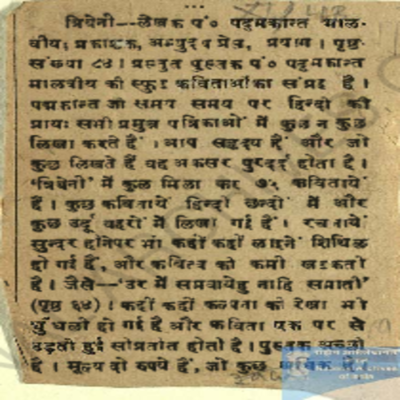 त्रिवेणी--लेखक पं० पद्मकान्त माल-
वीय; प्रकाशक, अभ्युदय प्रेस, प्रयाग। पृष्ठ-
संख्या ८४। प्रस्तुत पुस्तक पं० पद्मकान्त
मालवीय की स्फुट कविताओंका संग्रह है।
पद्मकान्त जी समय समय पर हिन्दी की
प्रायः सभी प्रमुख पत्रिकाओं में कुछ न कुछ
लिखा करते हैं। आप सहृदय हैं और जो
कुछ लिखते हैं वह अकसर पुरदर्द होता है।
'त्रिवेणी' में कुल मिला कर ७५ कवितायें
हैं। कुछ कवितायें हिन्दी छन्दों में और
कुछ उर्दू बहरों में लिखी गई हैं। रचनायें
सुन्दर होनेपर भी कहीं कहीं लाइनें शिथिल
हो गई हैं, और कवित्व की कमी खटकती
है। जैसे--'उर में समवायेहु नाहि समातो'
(पृष्ठ ६४)। कहीं कहीं कल्पना की रेखा भी
धुंधली हो गई है और कविता एक पर से
उड़ती हुई सी प्रतीत होती है। पुस्तक अच्छी
है। मूल्य दो रुपये हैं, जो कुछ अधिक है।